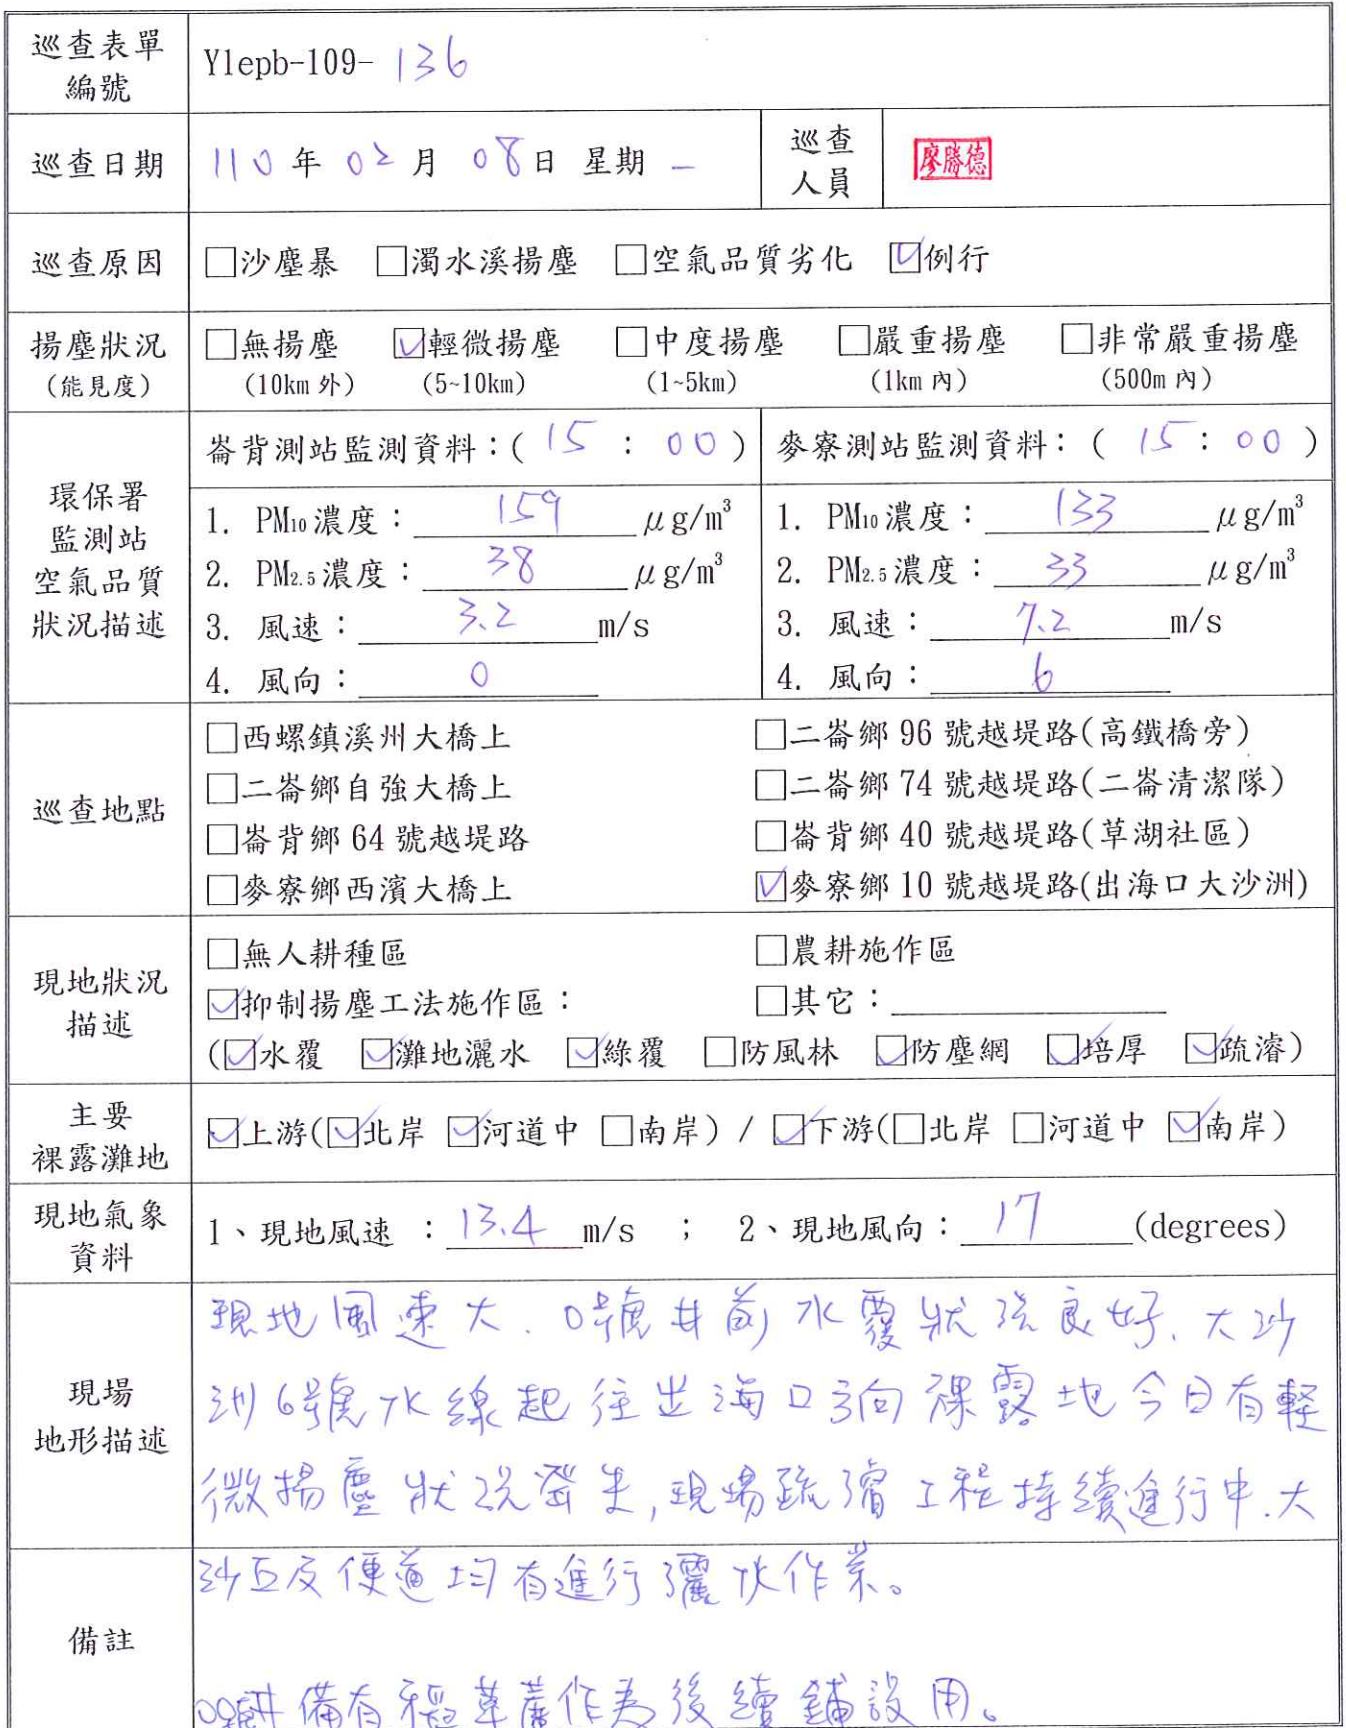 巡查表單編號 Ylepb-109-136
巡查日期 110年02月08日 星期一 巡查人員 廖勝德
巡查原因 □沙塵暴 □濁水溪揚塵 □空氣品質劣化 ☑例行
揚塵狀況 □無揚塵 ☑輕微揚塵 □中度揚塵 □嚴重揚塵 □非常嚴重揚塵
(能見度) (10km 外) (5~10km) (1~5km) (1km 內) (500m 內)
環保署
監測站
空氣品質
狀況描述
崙背測站監測資料:( 15 : 00 )
1. PM10濃度: 159 μg/m³
2. PM2.5濃度: 38 μg/m³
3. 風速: 3.2 m/s
4. 風向: 0
麥寮測站監測資料: ( 15 : 00 )
1. PM10濃度: 133 μg/m³
2. PM2.5濃度: 33 μg/m³
3. 風速: 7.2 m/s
4. 風向: 6
巡查地點
□西螺鎮溪州大橋上 □二崙鄉 96 號越堤路(高鐵橋旁)
□二崙鄉自強大橋上 □二崙鄉 74 號越堤路(二崙清潔隊)
□崙背鄉 64 號越堤路 □崙背鄉 40 號越堤路(草湖社區)
□麥寮鄉西濱大橋上 ☑麥寮鄉 10 號越堤路(出海口大沙洲)
現地狀況
描述
□無人耕種區 □農耕施作區
☑抑制揚塵工法施作區: □其它:
(☑水覆 ☑灘地灑水 ☑綠覆 □防風林 ☑防塵網 ☑培厚 ☑疏濬)
主要
裸露灘地
☑上游(☑北岸 ☑河道中 □南岸) / ☑下游(□北岸 □河道中 ☑南岸)
現地氣象
資料
1、現地風速 : 13.4 m/s ; 2、現地風向: 17 (degrees)
現場
地形描述
現地風速大、0號井前水覆狀況良好、大沙
洲6號水線起往出海口方向裸露地今日有輕
微揚塵狀況發生,現場疏濬工程持續進行中、大
備註
沙丘及便道均有進行灑水作業。
井備有稻草蓆作為後續鋪設用。